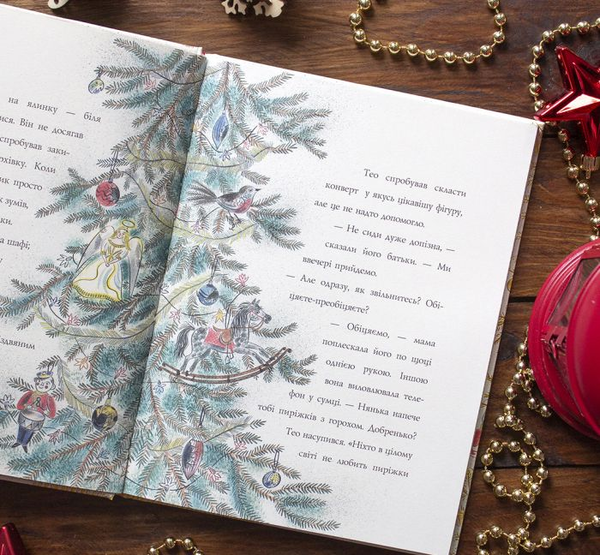 на ялинку — біля
ися. Він не досягав
спробував заки-
рхівку. Коли
ик просто
к зумів,
ки.
а шафі;
у
Здавяним
Тео спробував скласти
конверт у якусь цікавішу фігуру,
але це не надто допомогло.
— Не сиди дуже допізна, —
сказали його батьки. — Ми
ввечері прийдемо.
— Але одразу, як звільнитесь? Обі-
цяєте-преобіцяєте?
— Обіцяємо, — мама
поплескала його по щоці
однією рукою. Іншою
вона виловлювала теле-
фон у сумці. — Нянька напече
тобі пиріжків з горохом. Добренько?
Тео насупився. «Ніхто в цілому
світі не любить пиріжки